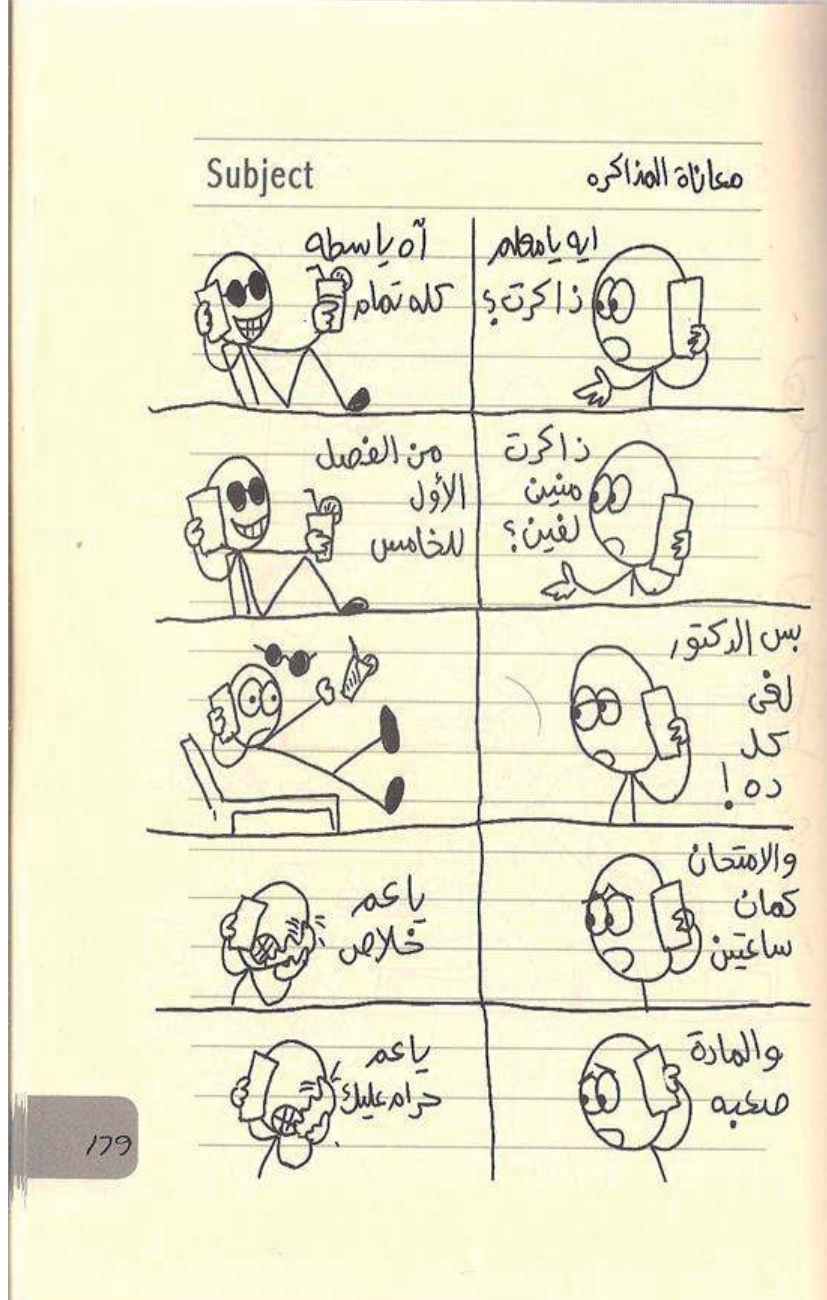 Subject
معاناة المذاكره
ايه يا معلم
ذاكرت؟
آه ياسطه
كله تمام
ذاكرت
منين
لفين؟
من الفصل
الأول
للخامس
بس الدكتور
لغى
كل
ده!
والامتحان
كمان
ساعتين
ياعم
خلاص
والمادة
صعبه
ياعم
حرام عليك
179